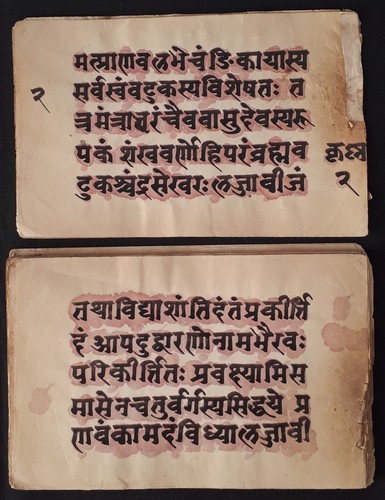 मत्प्राणवल्लभेचंडिकायास्य
सर्वस्वंवटुकस्यविशेषतः त
२
त्रमंत्राक्षरंचैववासुदेवस्यरू
पकं शंखवर्णोहिपरंब्रह्मव
कृष्ण
टुकश्चंद्रसेखरः लज्जावीजं
२
तथाविद्याशांतिदंतंप्रकीर्त्ति
दं आपदुद्धरणोनामभैरवः
परिकीर्त्तितः प्रवक्ष्यामिस
मासेनचतुर्वर्गस्यसिद्धये प्र
णवंकामदंविध्यालज्जावी